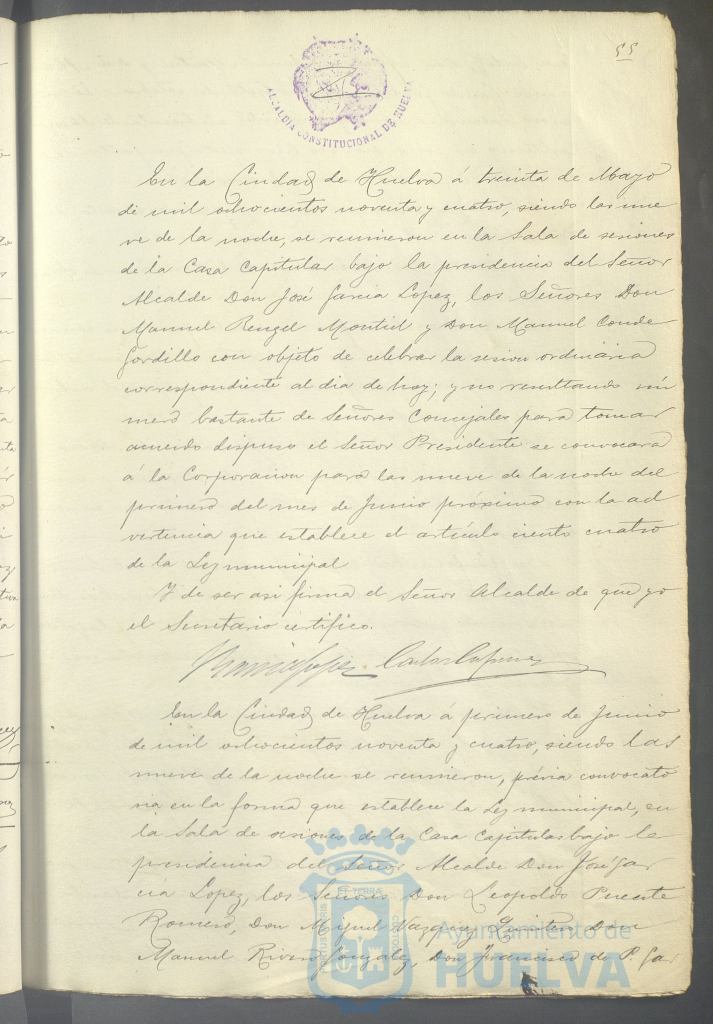 55
ALCALDIA CONSTITUCIONAL DE HUELVA
En la Ciudad de Huelva á treinta de Mayo
de mil ochocientos noventa y cuatro, siendo las nue
ve de la noche, se reunieron en la Sala de sesiones
de la Casa Capitular bajo la presidencia del Señor
Alcalde Don José Garcia Lopez, los Señores Don
Manuel Rengel Montiel y Don Manuel Conde
Gordillo con objeto de celebrar la sesion ordinaria
correspondiente al dia de hoy; y no resultando nú
mero bastante de Señores Concejales para tomar
acuerdo dispuso el Señor Presidente se convocara
á la Corporacion para las nueve de la noche del
primero del mes de Junio próximo con la ad
vertencia que establece el artículo ciento cuatro
de la Ley municipal
Y de ser asi firma el Señor Alcalde de que yo
el Secretario certifico.
Garcia Lopez
En la Ciudad de Huelva á primero de Junio
de mil ochocientos noventa y cuatro, siendo las
nueve de la noche se reunieron, prévia convocato
ria en la forma que establece la Ley municipal, en
la Sala de sesiones de la Casa Capitular bajo la
presidencia del Señor Alcalde Don José Gar
cia Lopez, los Señores Don Leopoldo Puente
Romero, Don Miguel Vazquez Don
Manuel Rivero Gonzalez, Don Francisco de P. Gar
Ayuntamiento de
HUELVA